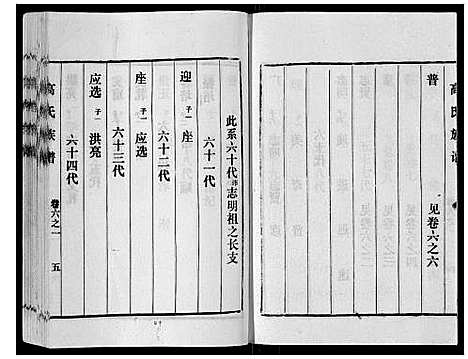 高氏族谱
普
见卷六之六
此系六十代讳志明祖之长支
六十一代
迎 子一 座
六十二代
座 子一 应选
六十三代
应选 子一 洪亮
六十四代
高氏族谱
卷六之一
五